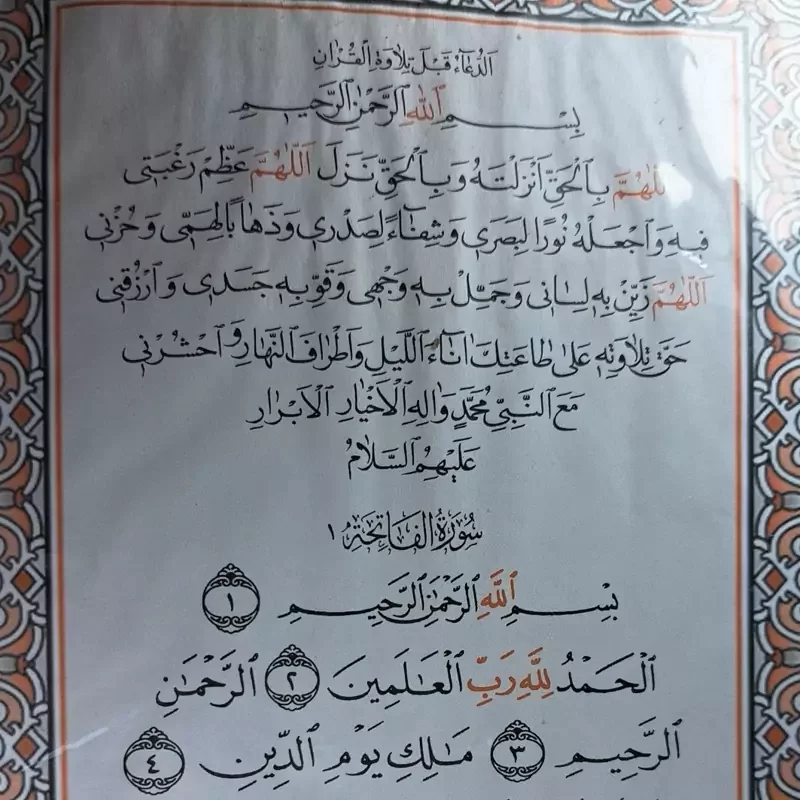 اَلدُّعَاءُ قَبْلَ تِلَاوَةِ الْقُرْاٰنِ
بِسْمِ اللّٰهِ الرَّحْمٰنِ الرَّحِيمِ
اَللّٰهُمَّ بِالْحَقِّ اَنْزَلْتَهُ وَبِالْحَقِّ نَزَلَ اَللّٰهُمَّ عَظِّمْ رَغْبَتِي
فِيهِ وَاجْعَلْهُ نُورًا لِبَصَرِي وَشِفَاءً لِصَدْرِي وَذَهَابًا لِهَمِّي وَحُزْنِي
اَللّٰهُمَّ زَيِّنْ بِهِ لِسَانِي وَجَمِّلْ بِهِ وَجْهِي وَقَوِّ بِهِ جَسَدِي وَارْزُقْنِي
حَقَّ تِلَاوَتِهِ عَلٰى طَاعَتِكَ اٰنَاءَ اللَّيْلِ وَاَطْرَافَ النَّهَارِ وَاحْشُرْنِي
مَعَ النَّبِيِّ مُحَمَّدٍ وَاٰلِهِ الْاَخْيَارِ الْاَبْرَارِ
عَلَيْهِمُ السَّلَامُ
سُورَةُ الْفَاتِحَةِ ١
بِسْمِ اللّٰهِ الرَّحْمٰنِ الرَّحِيمِ ١
اَلْحَمْدُ لِلّٰهِ رَبِّ الْعَالَمِينَ ٢ اَلرَّحْمٰنِ
الرَّحِيمِ ٣ مَالِكِ يَوْمِ الدِّينِ ٤